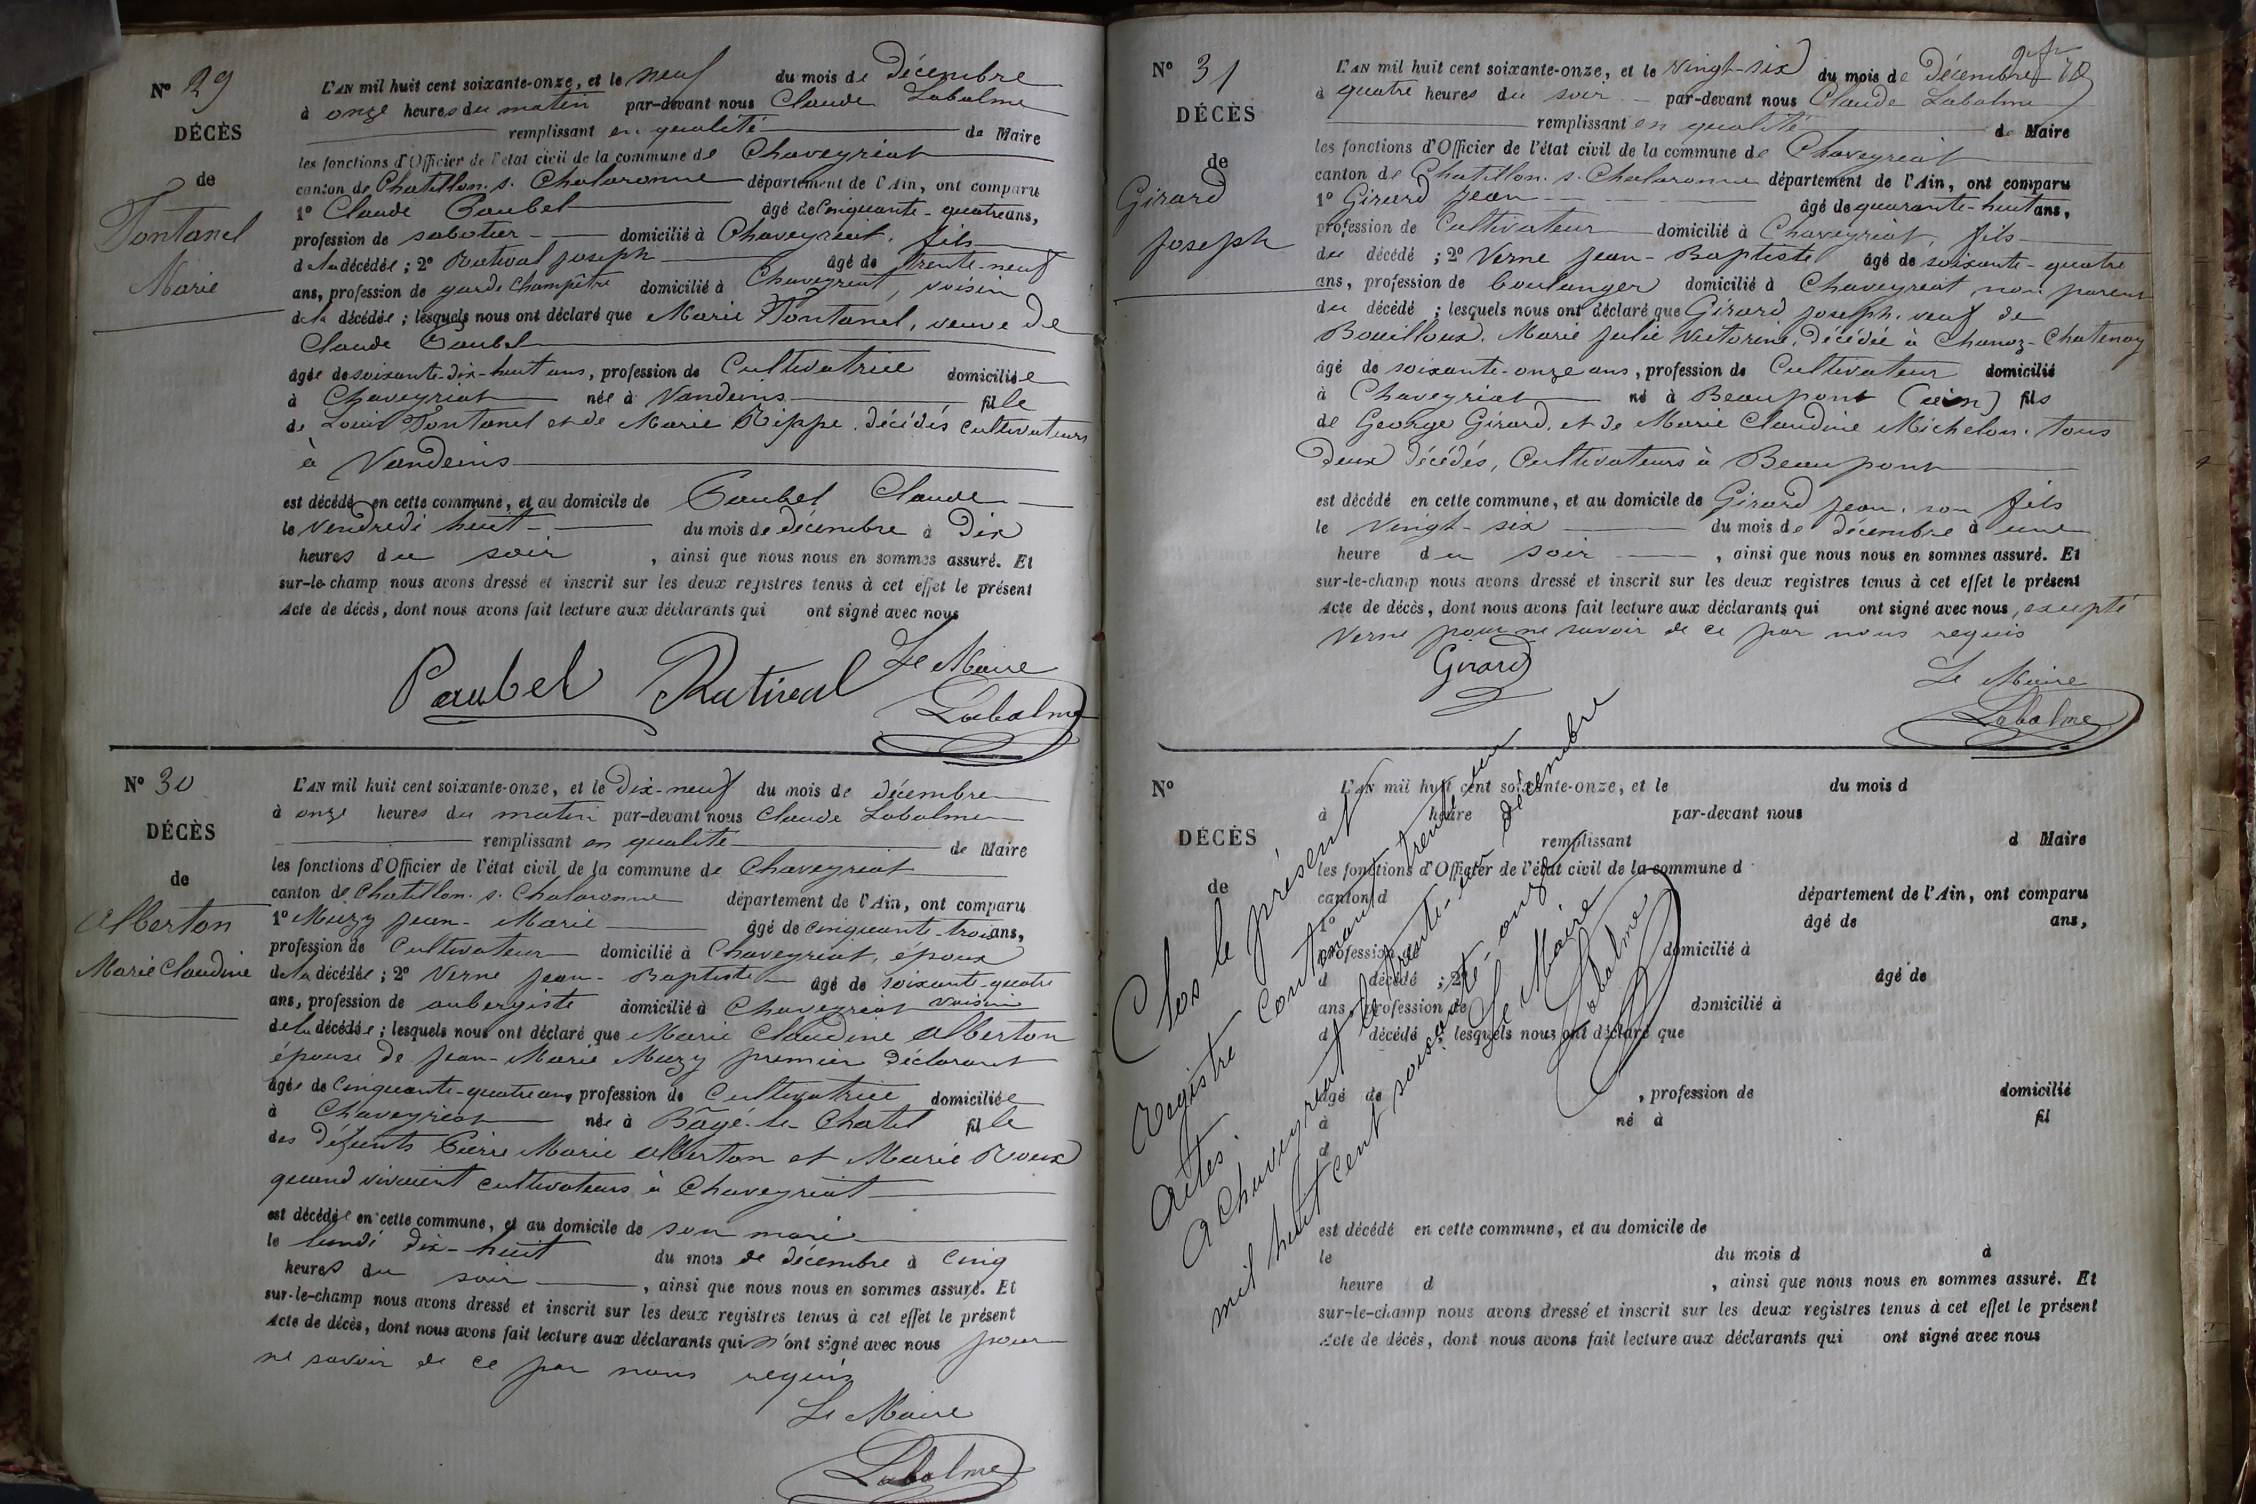 N° 29
DÉCÈS
de
Fontanel
Marie
L'AN mil huit cent soixante-onze, et le neuf du mois de décembre
à onze heures du matin par-devant nous Claude Labalme
remplissant en qualité de Maire
les fonctions d'Officier de l'état civil de la commune de Chaveyriat
canton de Chatillon. s. Chalaronne département de l'Ain, ont comparu
1° Claude Paubel âgé de cinquante-quatre ans,
profession de sabotier domicilié à Chaveyriat, fils
de la décédée ; 2° Rativeal joseph âgé de trente-neuf
ans, profession de garde champêtre domicilié à Chaveyriat, voisin
de la décédée ; lesquels nous ont déclaré que Marie Fontanel, veuve de
Claude Paubel
âgée de soixante-dix-huit ans, profession de Cultivatrice domiciliée
à Chaveyriat née à Vandeins fille
de Louis Fontanel et de Marie Rippe, décédés cultivateurs
à Vandeins
est décédée en cette commune, et au domicile de Paubel Claude
le vendredi huit du mois de décembre à dix
heures du soir, ainsi que nous nous en sommes assuré. Et
sur-le-champ nous avons dressé et inscrit sur les deux registres tenus à cet effet le présent
Acte de décès, dont nous avons fait lecture aux déclarants qui ont signé avec nous
Paubel Rativeal Le Maire
Labalme
N° 30
DÉCÈS
de
Alberton
Marie Claudine
L'AN mil huit cent soixante-onze, et le dix-neuf du mois de décembre
à onze heures du matin par-devant nous Claude Labalme
remplissant en qualité de Maire
les fonctions d'Officier de l'état civil de la commune de Chaveyriat
canton de Chatillon. s. Chalaronne département de l'Ain, ont comparu
1° Muzy Jean-Marie âgé de cinquante-trois ans,
profession de Cultivateur domicilié à Chaveyriat, époux
de la décédée ; 2° Verne Jean-Baptiste âgé de soixante-quatre
ans, profession de aubergiste domicilié à Chaveyriat voisin
de la décédée ; lesquels nous ont déclaré que Marie Claudine Alberton
épouse de Jean-Marie Muzy premier déclarant
âgée de cinquante-quatre ans, profession de Cultivatrice domiciliée
à Chaveyriat née à Bâgé-le-Chatel fille
des défunts Pierre Marie Alberton et Marie Roux
quand vivaient cultivateurs à Chaveyriat
est décédée en cette commune, et au domicile de son mari
le lundi dix-huit du mois de décembre à cinq
heures du soir, ainsi que nous nous en sommes assuré. Et
sur-le-champ nous avons dressé et inscrit sur les deux registres tenus à cet effet le présent
Acte de décès, dont nous avons fait lecture aux déclarants qui n'ont signé avec nous pour
ne savoir de ce par nous requis
Le Maire
Labalme
N° 31
DÉCÈS
de
Girard
Joseph
L'AN mil huit cent soixante-onze, et le vingt-six du mois de décembre
à quatre heures du soir par-devant nous Claude Labalme
remplissant en qualité de Maire
les fonctions d'Officier de l'état civil de la commune de Chaveyriat
canton de Chatillon. s. Chalaronne département de l'Ain, ont comparu
1° Girard Jean âgé de quarante-huit ans,
profession de Cultivateur domicilié à Chaveyriat, fils
du décédé ; 2° Verne Jean-Baptiste âgé de soixante-quatre
ans, profession de boulanger domicilié à Chaveyriat non parent
du décédé ; lesquels nous ont déclaré que Girard Joseph, veuf de
Bouilloux, Marie Julie Victorine, décédée à Chanoz-Chatenay
âgé de soixante-onze ans, profession de Cultivateur domicilié
à Chaveyriat né à Beaupont (ain) fils
de George Girard, et de Marie Claudine Michelon, tous
deux décédés, Cultivateurs à Beaupont
est décédé en cette commune, et au domicile de Girard Jean, son fils
le vingt-six du mois de décembre à une
heure du soir, ainsi que nous nous en sommes assuré. Et
sur-le-champ nous avons dressé et inscrit sur les deux registres tenus à cet effet le présent
Acte de décès, dont nous avons fait lecture aux déclarants qui ont signé avec nous, excepté
Verne pour ne savoir de ce par nous requis
Girard
Le Maire
Labalme
N°
DÉCÈS
de
L'AN mil huit cent soixante-onze, et le du mois d
à heure par-devant nous
remplissant d Maire
les fonctions d'Officier de l'état civil de la commune d
canton d département de l'Ain, ont comparu
1° âgé de ans,
profession de domicilié à
d décédé ; 2° âgé de
ans, profession de domicilié à
d décédé ; lesquels nous ont déclaré que
âgé de , profession de domicilié
à né à fil
d
est décédé en cette commune, et au domicile de
le du mois d à
heure d , ainsi que nous nous en sommes assuré. Et
sur-le-champ nous avons dressé et inscrit sur les deux registres tenus à cet effet le présent
Acte de décès, dont nous avons fait lecture aux déclarants qui ont signé avec nous
Clos le présent
registre contenant trente un
actes.
A Chaveyriat le trente-un décembre
mil huit cent soixante-onze
Le Maire
Labalme